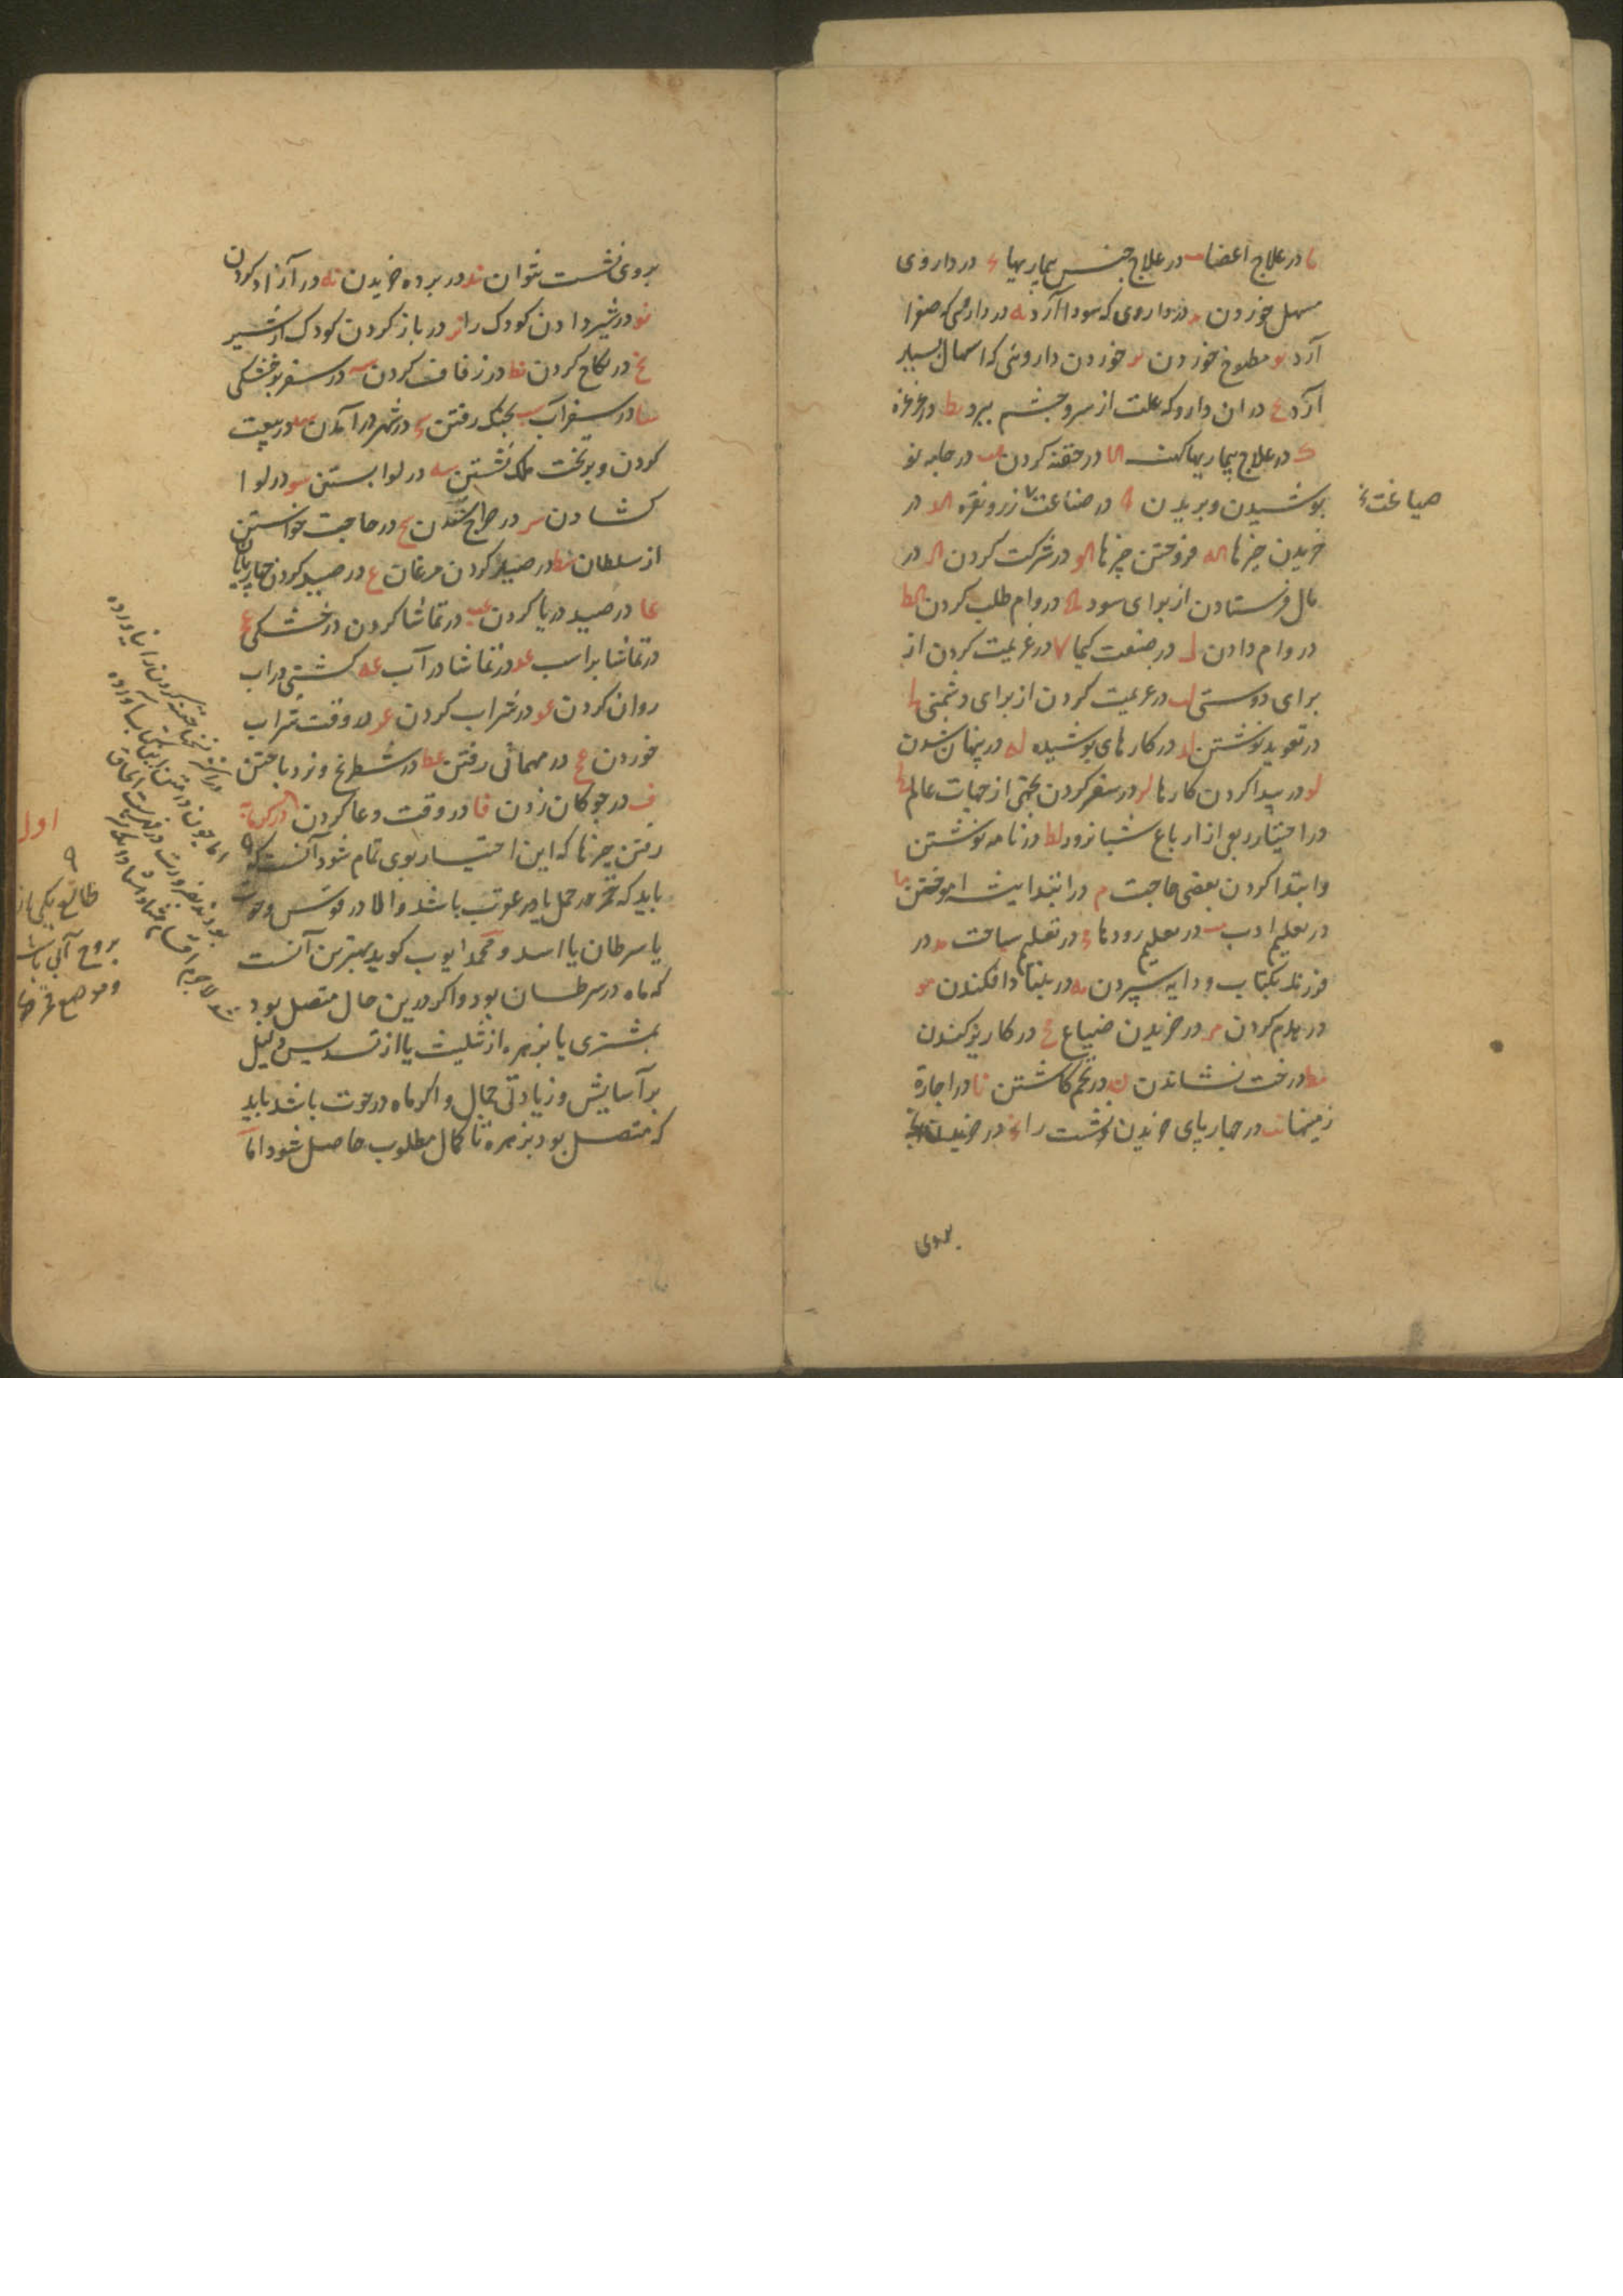 یا در علاج اعضا یب در علاج جنس بیماریها یج در داروی
مسهل خوردن ید در داروی که سودا آرد یه در داروی که صفرا
آرد یو مطبوخ خوردن یز خوردن داروئی که اسهال بسیار
آرد یح در ان دارو که علت از سر و چشم ببرد یط در غرغره
ک در علاج بیماریها کهنه کا در حقنه کردن کب در جامه نو
پوشیدن و بریدن کج در صناعت زر و نقره کد در
صیاغت
خریدن چیزها که فروختن چیزها کو در شرکت کردن کز در
مال فرستادن از برای سود کح در وام طلب کردن کط
در وام دادن ل در صنعت کیمیا لا در عزیمت کردن از
برای دوستی لب در عزیمت کردن از برای دشمنی لج
در تعوید نوشتن لد در کارهای پوشیده له در پنهان شدن
لو در پیدا کردن کارها لز در سفر کردن بجهتی از جهات عالم لح
در اختیار ربعی از ارباع شبانروز لط در نامه نوشتن
و ابتدا کردن بعضی حاجت م در ابتدا پیشه اموختن ما
در تعلیم ادب مب در تعلیم رودها مج در تعلیم سباحت مد در
فرزند بکتاب و دایه سپردن مه در بنیاد افکندن مو
در هدم کردن مز در خریدن ضیاع مح در کاریز کندن
مط درخت نشاندن ن در تخم کاشتن نا در اجارة
زمینها نب در چهارپای خریدن نشست را نج در خریدن
بروی
بروی نشست نتوان ند در برده خریدن نه در آزاد کردن
نو در شیر دادن کودک را نز در باز کردن کودک از شیر
نح در نکاح کردن نط در زفاف کردن س در سفر بر خشکی
سا در سفر آب سب بجنک رفتن سج در شهر در آمدن سد در بیعت
کردن و بر تخت ملک نشستن سه در لوا بستن سو در لوا
کشادن سز در خراج ستدن سح در حاجت خواستن
از سلطان سط در صید کردن مرغان ع در صید کردن چهارپایان
عا در صید دریا کردن عب در تماشا کردن در خشکی عج
در تماشا بر اسب عد در تماشا در آب عه کشتی در اب
روان کردن عو در شراب کردن عز در وقت شراب
خوردن عح در مهمانی رفتن عط در شطرنج و نرد باختن
ف در چوکان زدن فا در وقت دعا کردن در کرمابه
رفتن چیزها که این اختیار بوی تمام شود آنست که
باید که قمر در حمل یا در عقرب باشد و الا در قوس و حوت
یا سرطان یا اسد و محمد ایوب کوید بهترین آنست
که ماه در سرطان بود و اکر درین حال متصل بود
بمشتری یا بزهره از تثلیث یا از تسدیس دلیل
بر آسایش و زیادتی جمال و اکر ماه در حوت باشد باید
که متصل بود بزهره تا کمال مطلوب حاصل شود اما
اول
طالع یکی از
بروج آبی باشد
و موضع قمر